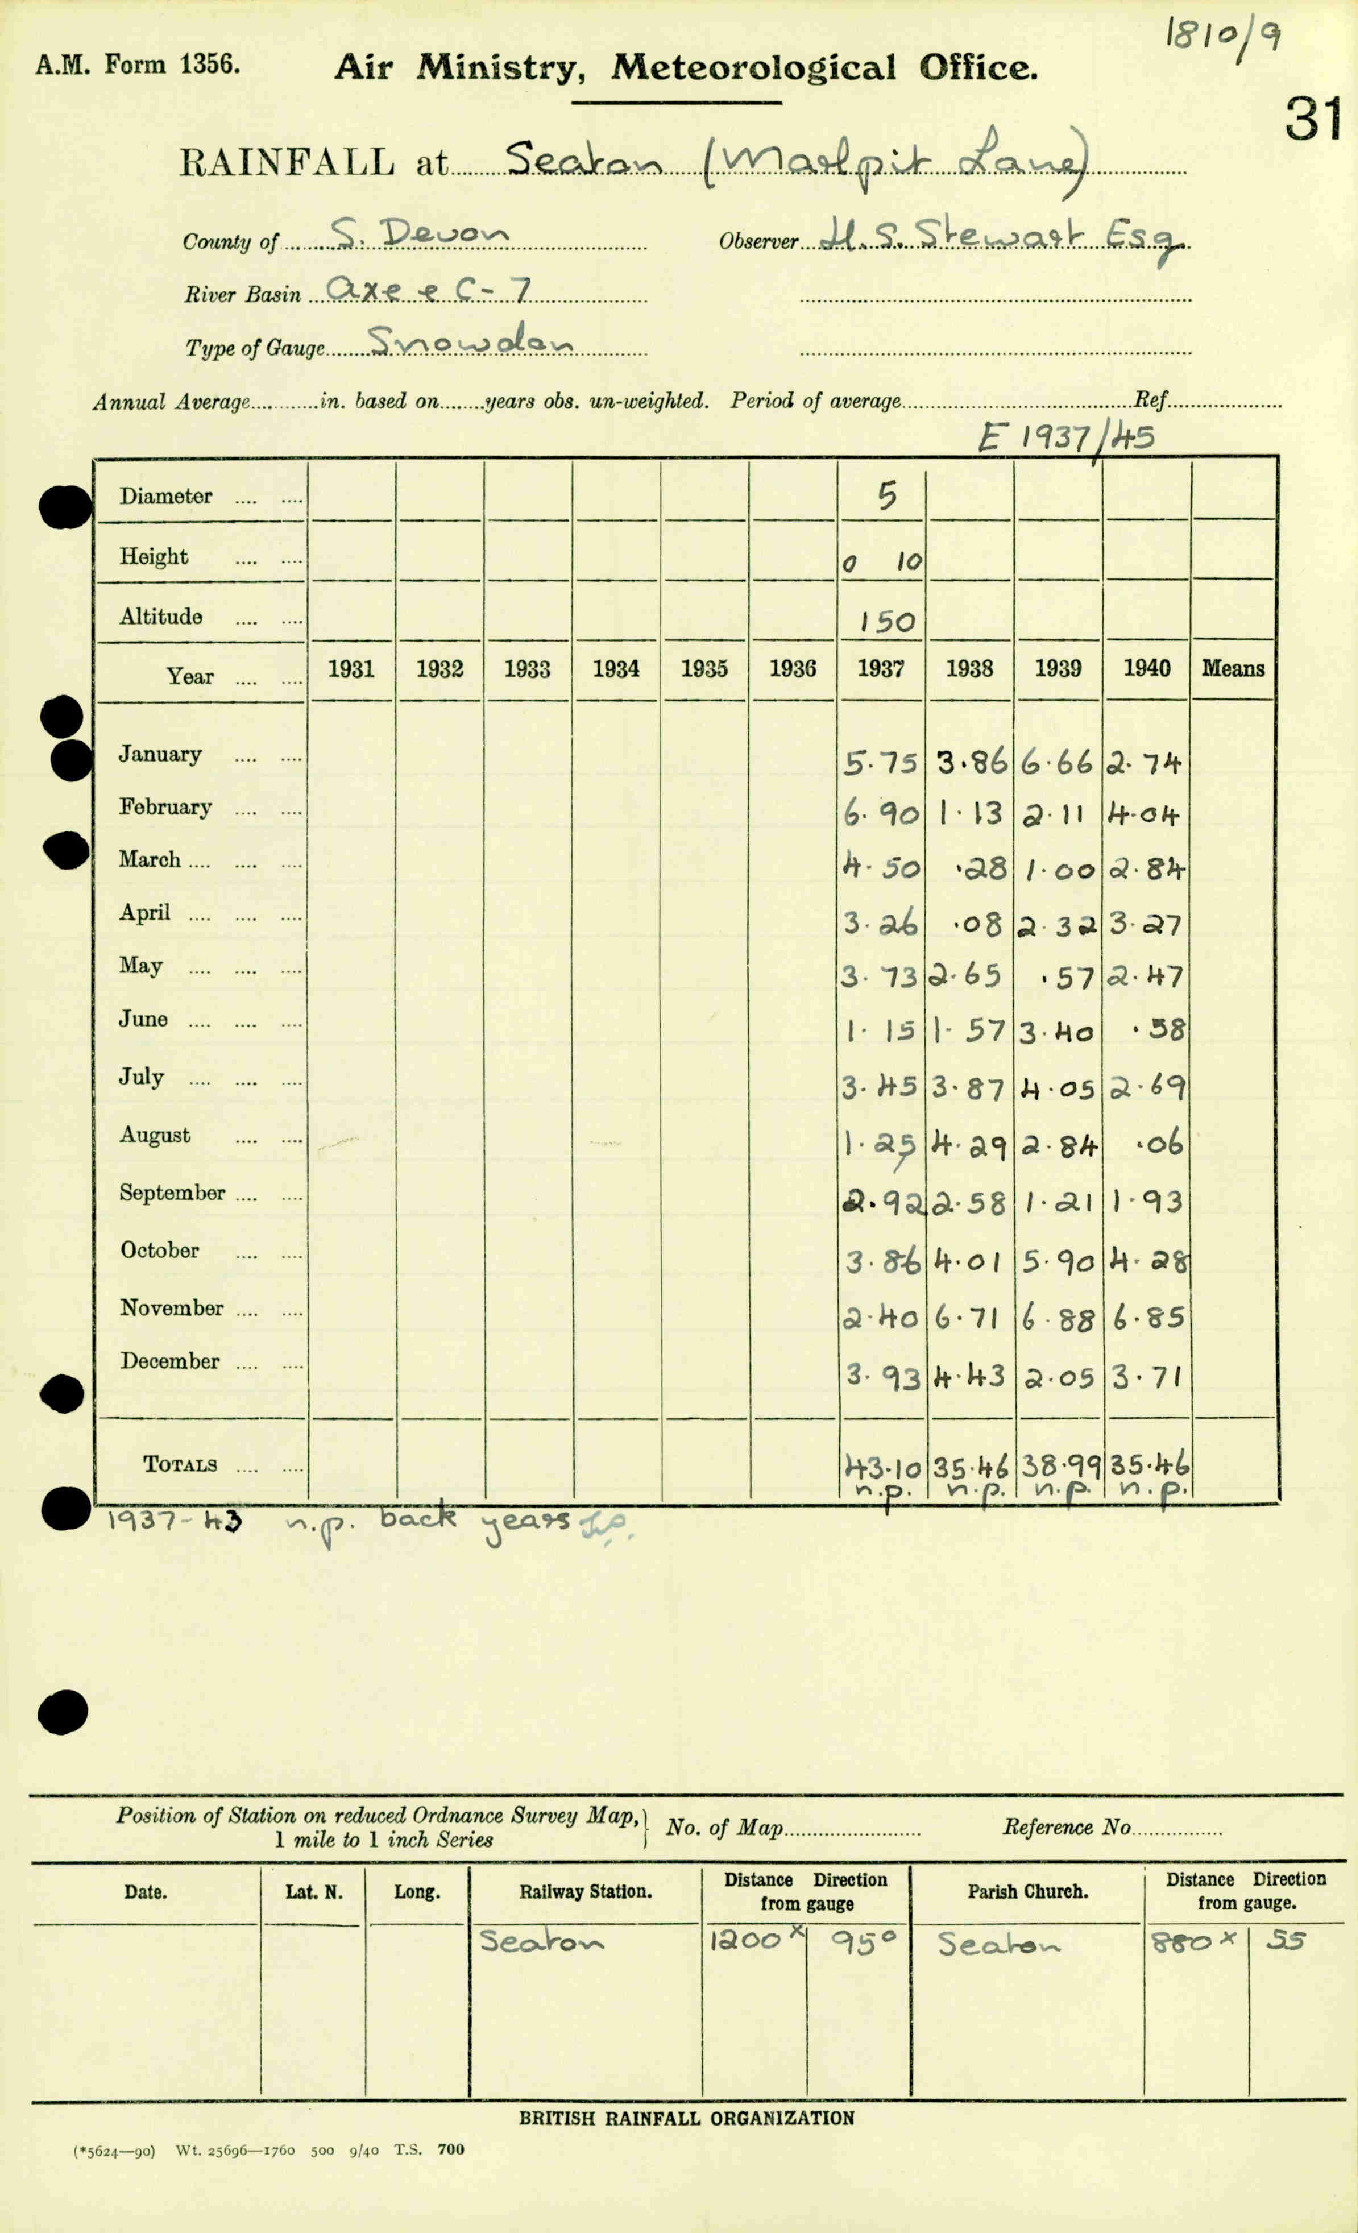 1810/9
A.M. Form 1356. Air Ministry, Meteorological Office.
31
RAINFALL at Seaton (Marlpit Lane)
County of S. Devon Observer H. S. Stewart Esq
River Basin Axe e C-7
Type of Gauge Snowdon
Annual Average............in. based on........years obs. un-weighted. Period of average................Ref................
E 1937/45
Diameter .... .... 5
Height .... .... 0 10
Altitude .... .... 150
Year .... .... 1931 1932 1933 1934 1935 1936 1937 1938 1939 1940 Means
January .... .... 5.75 3.86 6.66 2.74
February .... .... 6.90 1.13 2.11 4.04
March .... .... .... 4.50 .28 1.00 2.84
April .... .... .... 3.26 .08 2.32 3.27
May .... .... .... 3.73 2.65 .57 2.47
June .... .... .... 1.15 1.57 3.40 .58
July .... .... .... 3.45 3.87 4.05 2.69
August .... .... 1.25 4.29 2.84 .06
September .... .... 2.92 2.58 1.21 1.93
October .... .... 3.86 4.01 5.90 4.28
November .... .... 2.40 6.71 6.88 6.85
December .... .... 3.93 4.43 2.05 3.71
TOTALS .... .... 43.10 35.46 38.99 35.46
n.p. n.p. n.p. n.p.
1937-43 n.p. back years
Position of Station on reduced Ordnance Survey Map, 1 mile to 1 inch Series } No. of Map................ Reference No................
Date. Lat. N. Long. Railway Station. Distance Direction from gauge Parish Church. Distance Direction from gauge.
Seaton 1200 x 95° Seaton 880 x 55
BRITISH RAINFALL ORGANIZATION
(*5624—90) Wt. 25696—1760 500 9/40 T.S. 700